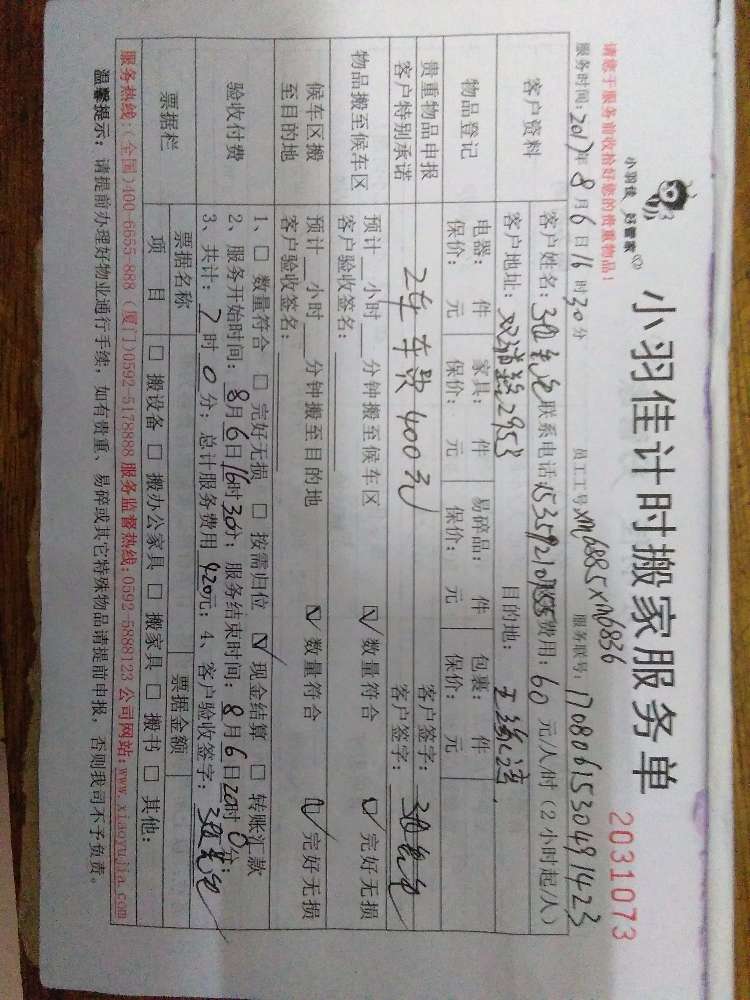 小羽佳 好管家
小羽佳计时搬家服务单
2031073
请您于服务前收拾好您的贵重物品!
员工工号:xm6885xm6836 服务联号:1708061530491423
服务时间:2017年8月6日16时30分
客户资料
客户姓名: 联系电话: 费用:60元/人/时(2小时起/人)
客户地址: 2953 目的地:
物品登记
电器: 件 家具: 件 易碎品: 件 包裹: 件
保价: 元 保价: 元 保价: 元 保价: 元
贵重物品申报
客户特别承诺
2车 车费400元
客户签字:
客户签字:
物品搬至候车区
预计__小时__分钟搬至候车区 ☑数量符合 ☑完好无损
客户验收签名:
候车区搬
至目的地
预计__小时__分钟搬至目的地 ☑数量符合 ☑完好无损
客户验收签名:
验收付费
1、□ 数量符合 □ 完好无损 □ 按需归位 ☑ 现金结算 □ 转账汇款
2、服务开始时间:8月6日16时30分;服务结束时间:8月6日20时0分;
3、共计:2时0分;总计服务费用420元;4、客户验收签字:
票据栏
票据名称 票据金额
项目 □ 搬设备 □ 搬办公家具 □ 搬家具 □ 搬书 □ 其他:
服务热线:(全国)400-6655-888 (厦门)0592-5178888 服务监督热线:0592-5888123 公司网站:www.xiaoyujia.com
温馨提示:请提前办理好物业通行手续,如有贵重、易碎或其它特殊物品请提前申报,否则我司不予负责。